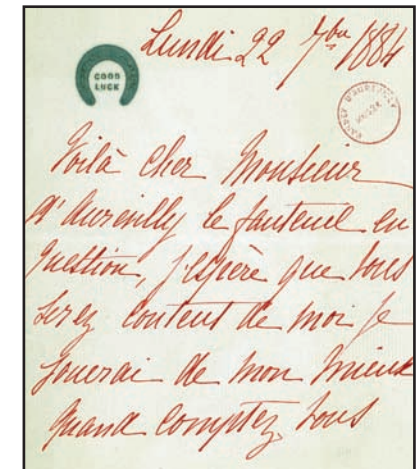 Lundi 22 7bre 1884
GOOD
LUCK
Voilà cher Monsieur
d'Aurevilly le fauteuil en
question, j'espère que vous
serez content de moi je
jouerai de mon mieux
quand comptez vous